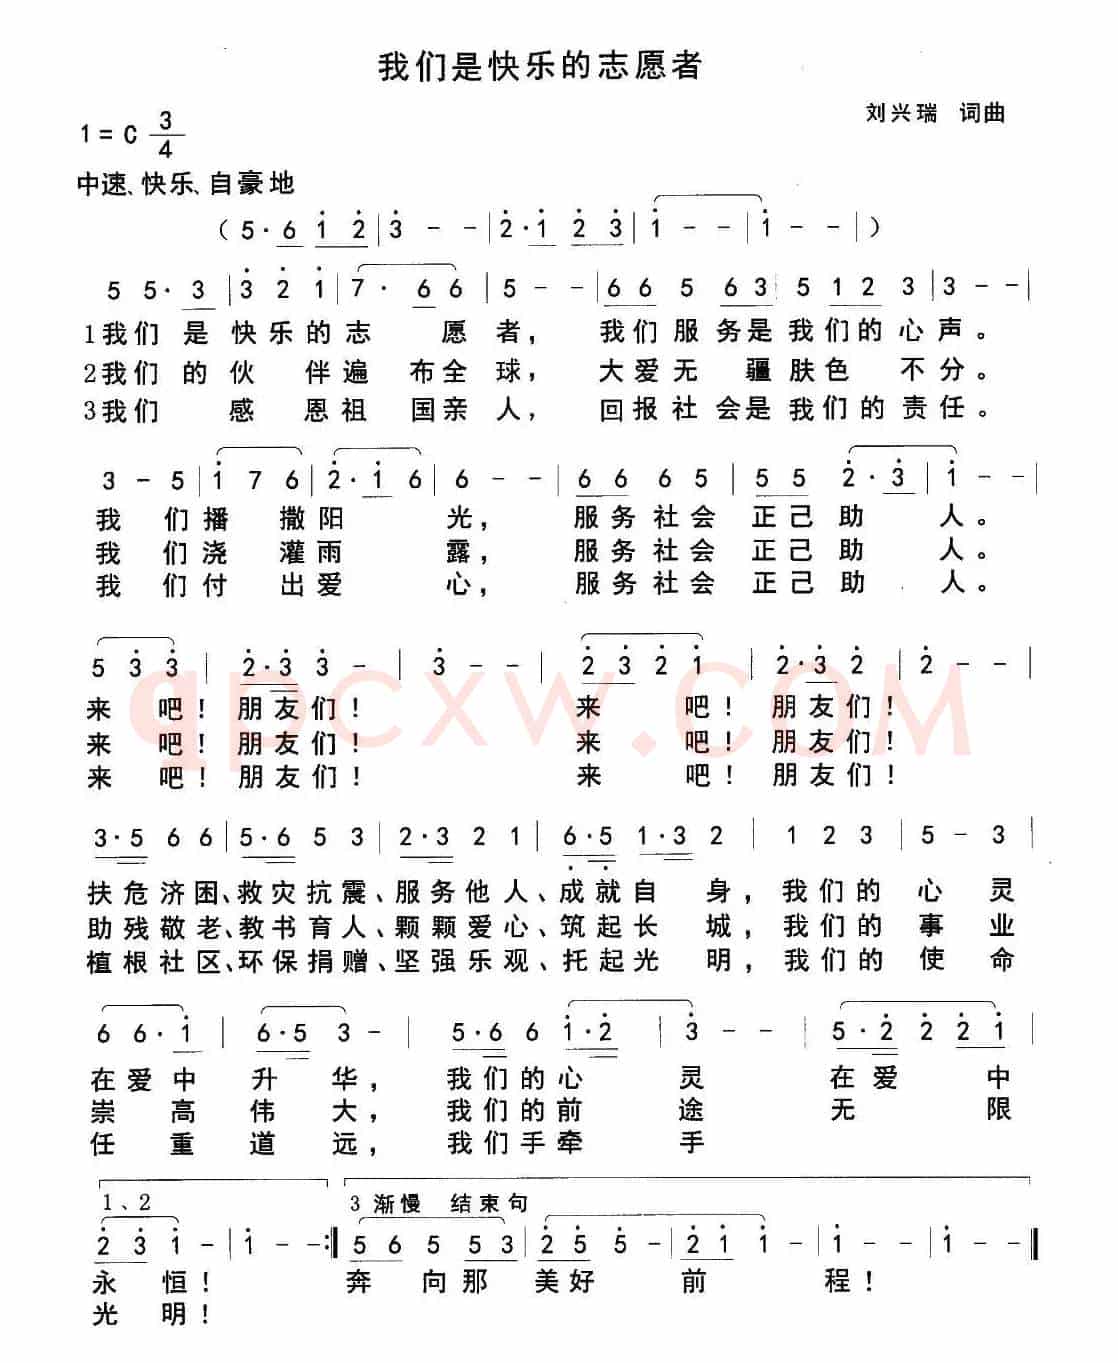 我们是快乐的志愿者
刘兴瑞 词曲
1=C 3/4
中速、快乐、自豪地
(5·6 1 2|3 - -|2·1 2 3|1 - -|1 - -|)
5 5·3|3 2 1|7·6 6|5 - -|6 6 5 6 3|5 1 2 3|3 - -|
1我们是快乐的志愿者，我们服务是我们的心声。
2我们的伙伴遍布全球，大爱无疆肤色不分。
3我们感恩祖国亲人，回报社会是我们的责任。
3 - 5|1 7 6|2·1 6|6 - -|6 6 6 5|5 5 2·3|1 - -|
我们播撒阳光，服务社会正己助人。
我们浇灌雨露，服务社会正己助人。
我们付出爱心，服务社会正己助人。
5 3 3|2·3 3 -|3 - -|2 3 2 1|2·3 2|2 - -|
来吧！朋友们！来吧！朋友们！
来吧！朋友们！来吧！朋友们！
来吧！朋友们！来吧！朋友们！
qpcxw.COM
3·5 6 6|5·6 5 3|2·3 2 1|6·5 1·3 2|1 2 3|5 - 3|
扶危济困、救灾抗震、服务他人、成就自身，我们的心灵
助残敬老、教书育人、颗颗爱心、筑起长城，我们的事业
植根社区、环保捐赠、坚强乐观、托起光明，我们的使命
6 6·1|6·5 3 -|5·6 6 1·2|3 - -|5·2 2 2 1|
在爱中升华，我们的心灵在爱中
崇高伟大，我们的前途无限
任重道远，我们手牵手
1、2
3 渐慢 结束句
2 3 1 -|1 - -:‖5 6 5 5 3|2 5 5 -|2 1 1 -|1 - -|1 - -‖
永恒！奔向那美好前程！
光明！